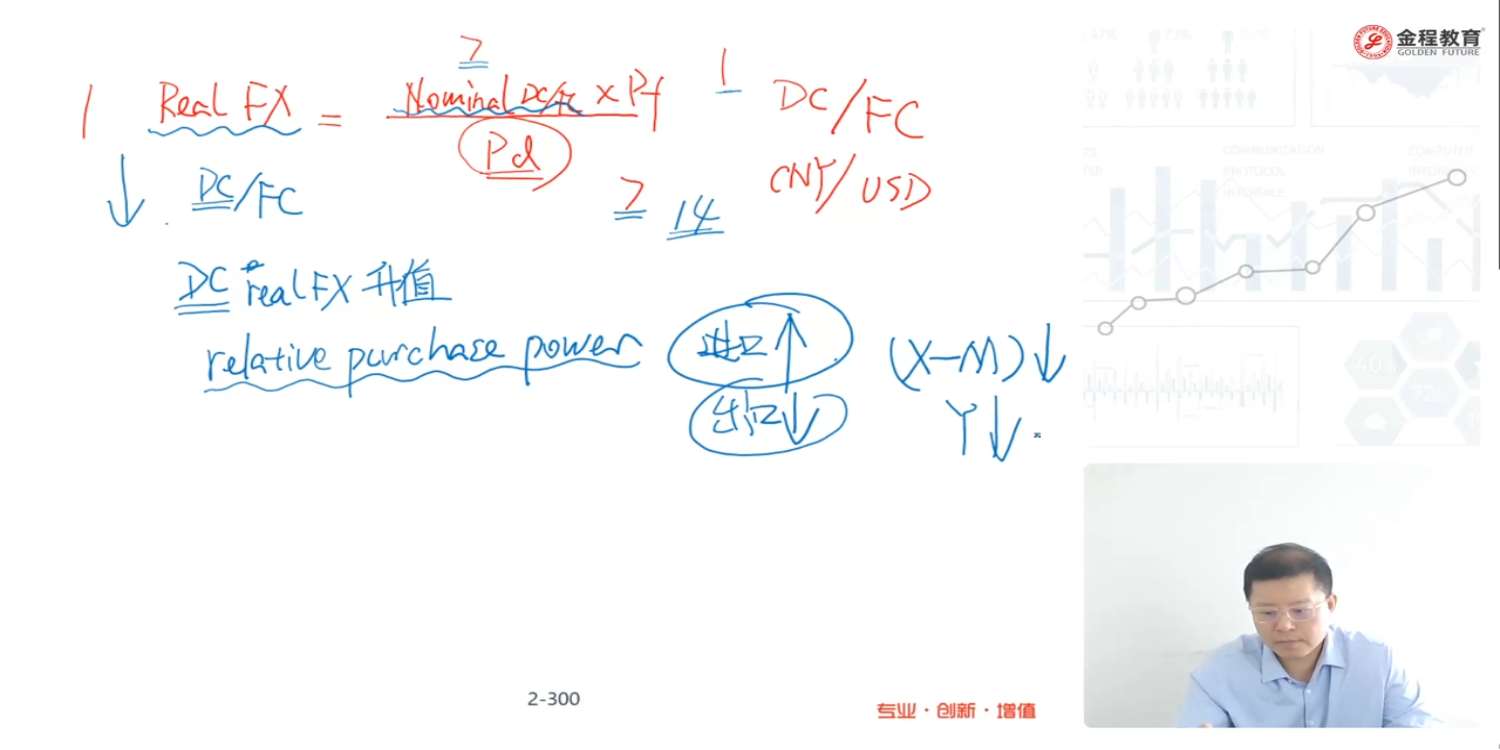 金程教育
GOLDEN FUTURE
7
1 Real FX = Nominal DC/FC × Pf 1 DC/FC
Pd
CNY/USD
↓ DC/FC
7 14
DC real FX 升值
relative purchase power 进口↑ (X-M)↓
出口↓ Y↓
2-300
专业·创新·增值